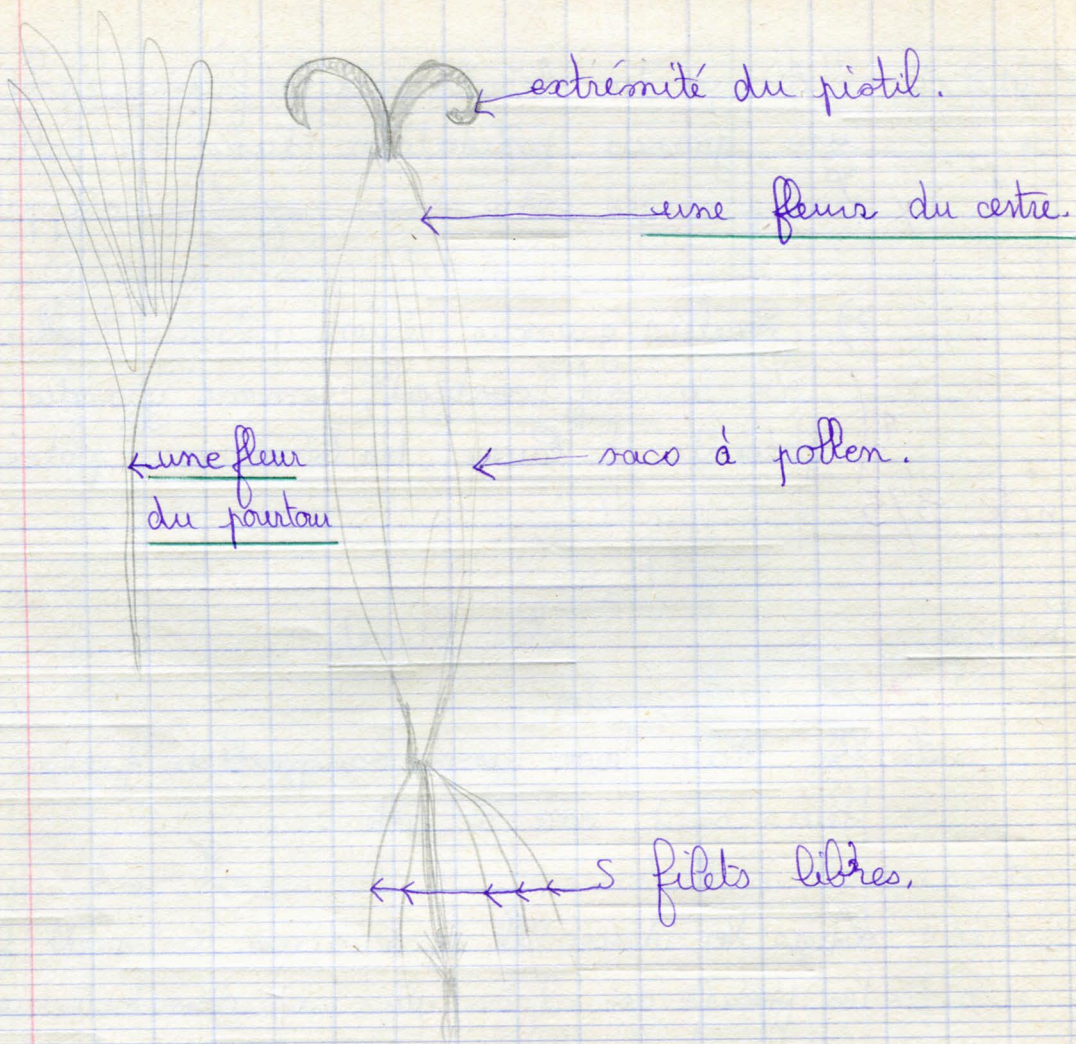 extrémité du pistil.
une fleur du centre.
une fleur
du pourtour
sacs à pollen.
5 filets libres.